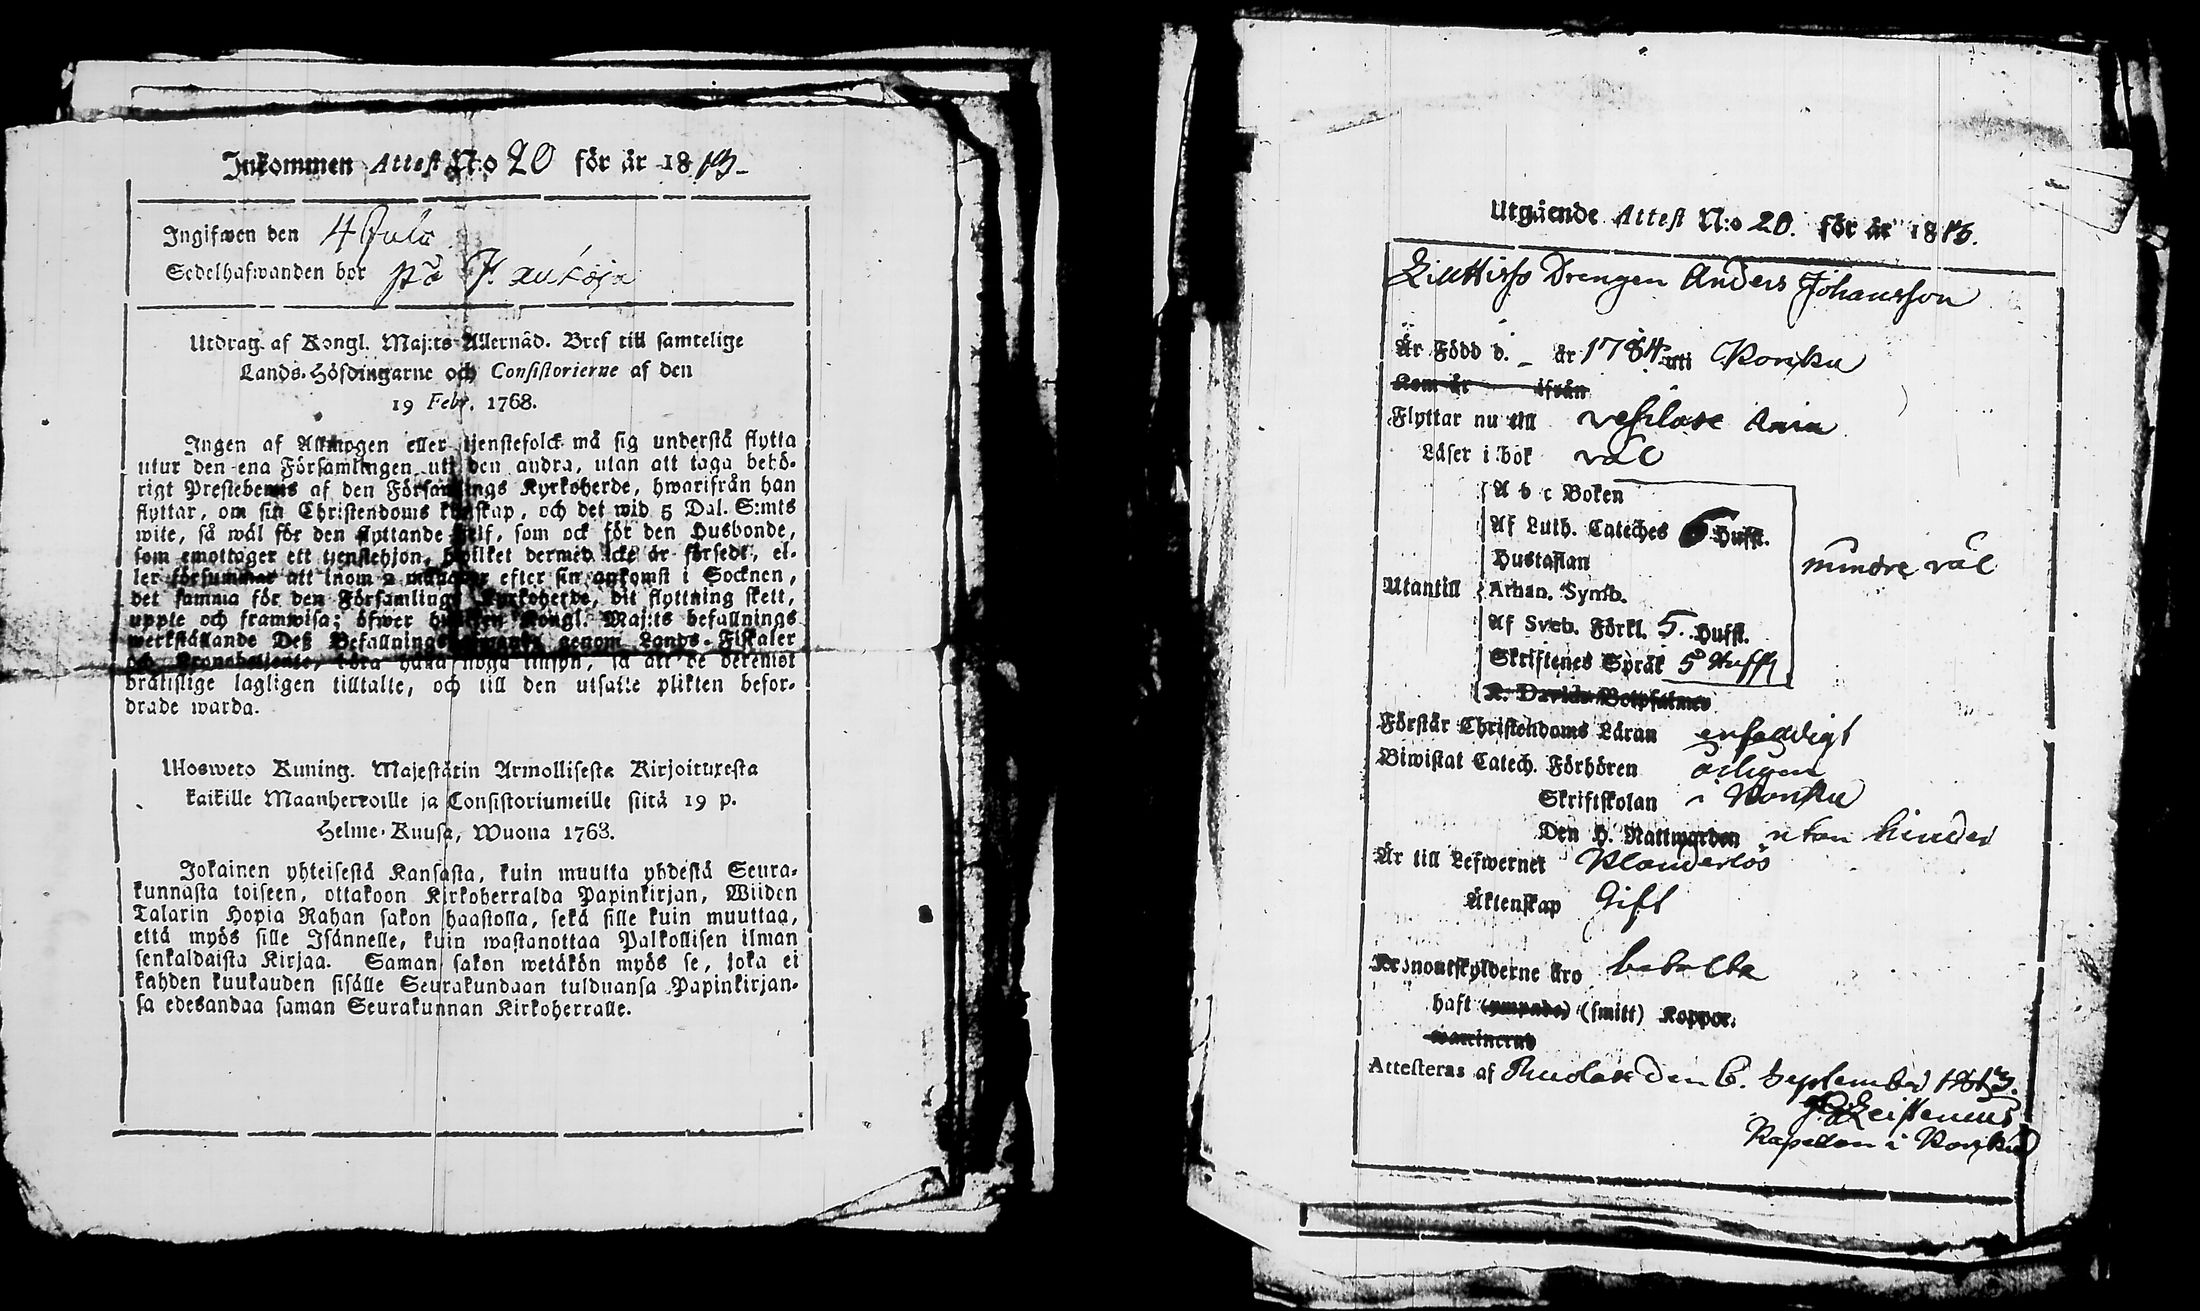 Inkommen Attest N:o 20 för år 1813.
Ingifwen den 4 Jula
Sedelhafwanden bor på
Utdrag af Kongl. Maj:ts Allernåd. Bref till samtelige
Lands-Höfdingarne och Consistorierne af den
19 Febr. 1768.
Ingen af Allmogen eller tjenstefolck må sig understå flytta
utur den ena Församlingen uti den andra, utan att taga behö-
rigt Prestebewis af den Församlings Kyrkoherde, hwarifrån han
flyttar, om sin Christendoms kunskap, och det wid 5 Dal. S:mts
wite, så wäl för den flyttande self, som ock för den Husbonde,
som emottager ett tjenstehjon, hwilket dermed icke är försedt, el-
ler försummar att inom 2 månader efter sin ankomst i Socknen,
det samma för den Församlings Kyrkoherde, dit flyttning skett,
uppte och framwisa; öfwer hwilken Kongl. Maj:ts befallnings
werkställande Deß Befallningshafwande genom Lands-Fiskaler
och Kronobetjente, böra hafwa noga insyn, så att de deremot
brätslige lagligen tilltalte, och till den utsatte plikten befor-
drade warda.
Ulosweto Kuning. Majestätin Armollisesta Kirjoituxesta
kaikille Maanherroille ja Consistoriumeille siitä 19 p.
Helme-Kuusa, Wuona 1768.
Jokainen yhteisestä Kansasta, kuin muutta yhdestä Seura-
kunnasta toiseen, ottakoon Kirkoherralda Papinkirjan, Wiiden
Talarin Hopia Rahan sakon haastolla, sekä sille kuin muuttaa,
että myös sille Isännelle, kuin wastanottaa Palkollisen ilman
senkaldaista Kirjaa. Saman sakon wetäkön myös se, joka ei
kahden kuukauden sisälle Seurakundaan tulduansa Papinkirjan-
sa edesandaa saman Seurakunnan Kirkoherralle.
Utgående Attest N:o 20. för år 1813.
Drengen Anders Johansson
Är Född d. _ år 1784 uti Konku
Kom år ifrån
Flyttar nu till
Läser i bok väl
A b c Boken
Af Luth. Cateches 6 Hufst.
Hustaflan
Utantill Athan. Symb. mindre väl
Af Sveb. Förkl. 5. Hufst.
Skriftenes Språk 5 Hufst
K. Davids Botpsalmer
Förstår Christendoms Läran enfaldigt
Biwistat Catech. Förhören årligen
Skriftskolan i Konku
Den H. Nattwarden utan hinder
Är till Lefwernet Klanderlös
Äktenskap Gift
Kronoutskylderne äro betalta
haft (ympade) (smitt) Koppor.
waccinerad
Attesteras af den 6. September 1813.
Kapellan i Konku